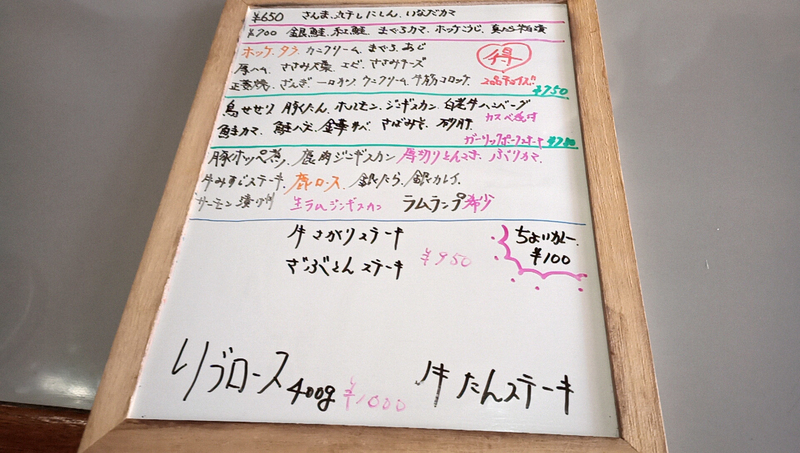 ¥650 さんま、丸干しにしん、いなだカマ
¥700 銀鮭、紅鮭、まぐろカマ、ホッケこうじ、真だら粕漬
ホッケ、タラ、カニクリーム、まぐろ、あじ
厚ハム、ささみ大葉、エビ、ささみチーズ
ざんぎ、一口カツ、カニクリーム、牛筋コロッケ
得
2品チョイス
¥750
鳥せせり、豚たん、ホルモン、ジンギスカン、白老牛ハンバーグ
鮭カマ、鮭ハラス、金華サバ、さばみそ、砂肝
カスベ
ガーリックポークステーキ
¥780
豚ホッペ煮、鹿肉ジンギスカン、厚切りとんてき、ぶりカマ
牛みすじステーキ、鹿ロース、銀だら、銀カレイ、
サーモン 生ラムジンギスカン ラムランプ 希少
牛さがりステーキ
ざぶとんステーキ
¥950
ちょいカレー
¥100
リブロース 400g ¥1000
牛たんステーキ